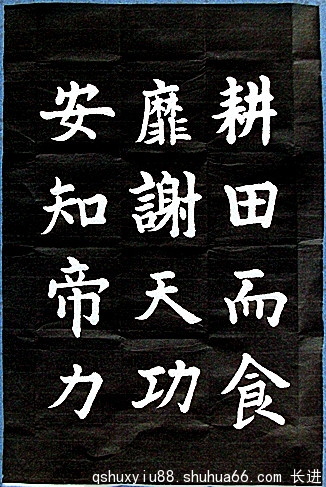 耕田而食
靡謝天功
安知帝力
qshuxyiu88.shuhua66.com 长进